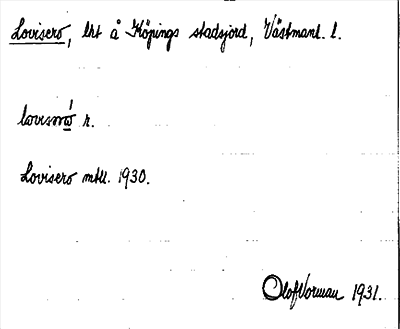 Lovisero, lht å Köpings stadsjord, Västmanl. l.
r.
Lovisero mtll. 1930.
Olof Norman 1931.